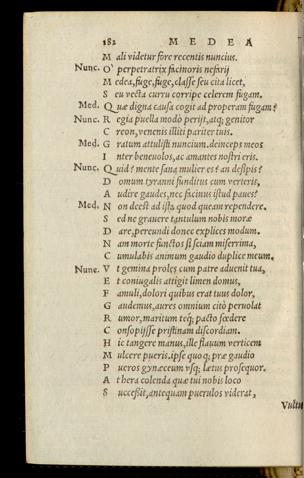 182 MEDEA
Mali videtur fore recentis nuncius.
Nunc. O' perpetratrix facinoris nefarij
Medea, fuge, fuge, classe seu cita licet,
Seu vecta curru corripe celerem fugam.
Med. Quæ digna causa cogit ad properam fugam?
Nunc. Regia puella modò perijt, atq; genitor
Creon, venenis illiti pariter tuis.
Med. Gratum attulisti nuncium. deinceps meos
Inter beneuolos, ac amantes nostri eris.
Nunc. Quid? mente sana mulier es? an despis?
Domum tyranni funditus cum verteris,
Audire gaudes, nec facinus istud paues?
Med. Non deest ad ista quod queam rependere.
Sed ne grauere tantulum nobis moræ
Dare, pereundi donec explices modum.
Nam morte functos si sciam miserrima,
Cumulabis animum gaudio duplice meum.
Nunc. Vt gemina proles cum patre aduenit tua,
Et coniugalis attigit limen domus,
Famuli, dolori quibus erat tuus dolor,
Gaudemus, aures omnium citò peruolat
Rumor, maritum teq; pacto fœdere
Consopijsse pristinam discordiam.
Hic tangere manus, ille flauum verticem
Mulcere pueris. ipse quoq; præ gaudio
Pueros gynæceum vsq; lætus prosequor.
At hera colenda quæ tui nobis loco
Successit, antequam puerulos viderat,
Vultu